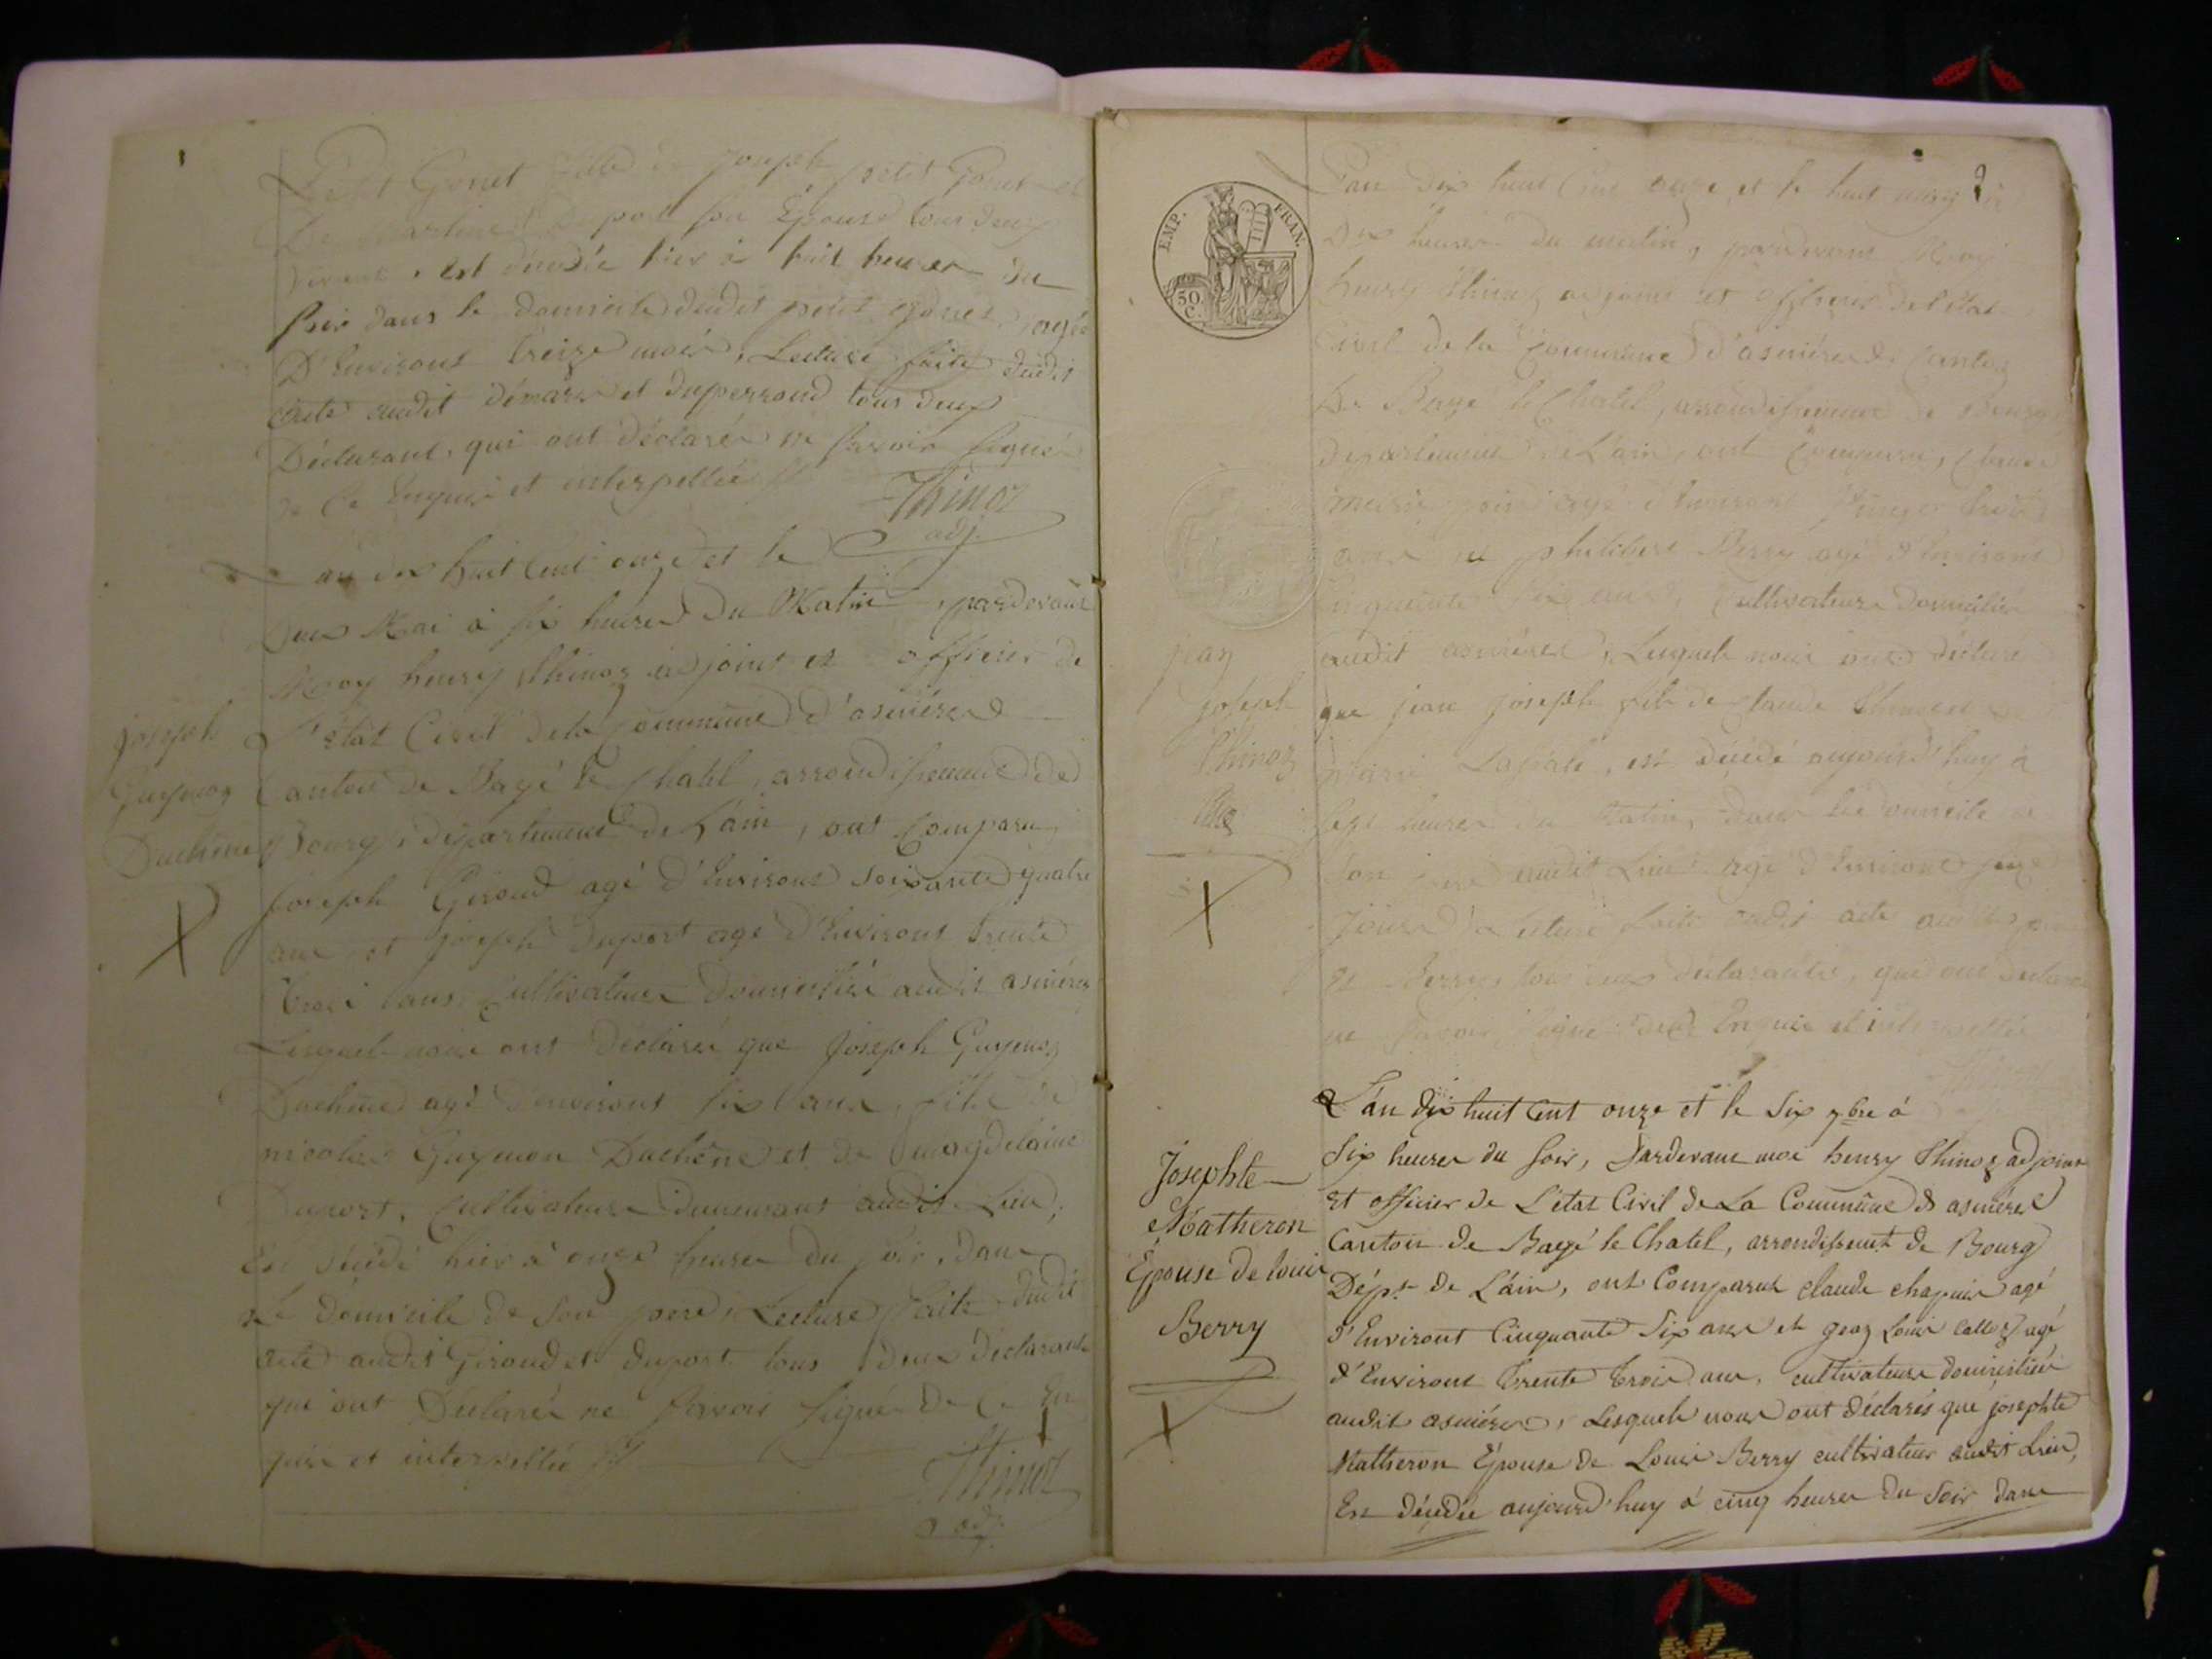 Petit Gonet fille de Joseph petit Gonet et
De Martine Duport son Épouse tous deux
vivants, est décédée hier à huit heures du
Soir dans le domicile dudit petit gonet, agée
D'Environt treize mois, Lecture faite dudit
acte audit démare et duperroud tous deux
Déclarant, qui ont déclarés ne savoir signé
de Ce Enquis et interpellée
Thinoz
adj.
an dix huit Cent onze et le
Deux Mai à six heures du Matin, pardevant
Moy henry Thinoz adjoint et officier de
L'état Civil dela Commune d'asnières
Canton de Bagé le Chatel, arrondissement de
Bourg, département de L'ain, ont Comparu,
joseph Giroud agé d'Environt soixante quatre
ans et joseph duport agé d'Environt trente
trois ans Cultivateurs Domiciliés audit asnières
Lesquels nous ont déclarés que Joseph Guymoz
Duchêne agé d'environt six ans, fils de
nicolas Guymon Duchêne et de magdelaine
Duport, Cultivateurs demeurants audit Lieu,
Est décédé hier à onze heures du soir, dans
Le domicile de Son pere, Lecture faite dudit
acte audit Giroud et duport tous deux déclarants
qui ont Déclarés ne Savoir Signé De Ce En
quis et interpellée
Thinoz
adj.
joseph
Guymoz
Duchêne
EMP. FRAN.
50.
C.
L'an dix huit Cent onze, et le huit may à
dix heures du matin, pardevant Moy
henry Thinoz adjoint et officier de l'état
Civil de la Commune d'asnières Canton
De Bagé le Chatel, arrondissement de Bourg
département de L'ain, ont Comparu, Claude
ans et philibert Berry agé d'Environt
Cinquante six ans, Cultivateurs Domiciliés
audit asnières, Lesquels nous ont déclaré
que jean joseph fils de Claude Thinoz et
marie Lapalé, est décédé aujourd'huy à
sept heures du Matin, dans le domicile de
Son pere audit Lieu agé d'Environt
jours, Lecture faite dudit acte
et Berry, tous deux déclarants, qui ont déclaré
ne Savoir Signé de Ce Enquis et interpellée
jean
joseph
Thinoz
L'an dix huit Cent onze et le Six 7bre à
Six heures du Soir, Pardevant moi henry Thinoz adjoint
et officier de L'état Civil de La Commune d asnières
Canton de Bagé le Chatel, arrondissemt de Bourg
Dépt de L'ain, ont Comparus claude chapuis agé
d'Environt Cinquante Six ans et jean Louis Calloz agé
d'Environt trente trois ans, cultivateurs domiciliés
audit asnières, Lesquels nous ont déclarés que josephte
Matheron Épouse de Louis Berry cultivateur audit Lieu,
Est décédée aujourd'huy à cinq heures du Soir dans
Josephte
Matheron
Epouse de louis
Berry